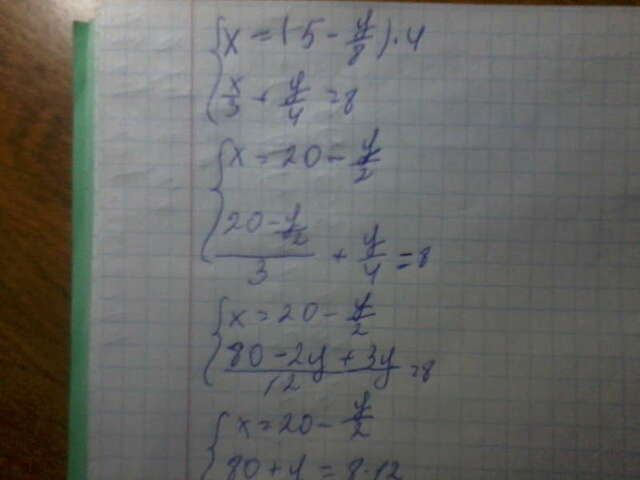 x = (5 - y/8) · 4
x/3 + y/4 = 8
x = 20 - y/2
(20 - y/2)/3 + y/4 = 8
x = 20 - y/2
(80 - 2y + 3y)/12 = 8
x = 20 - y/2
80 + y = 8 · 12